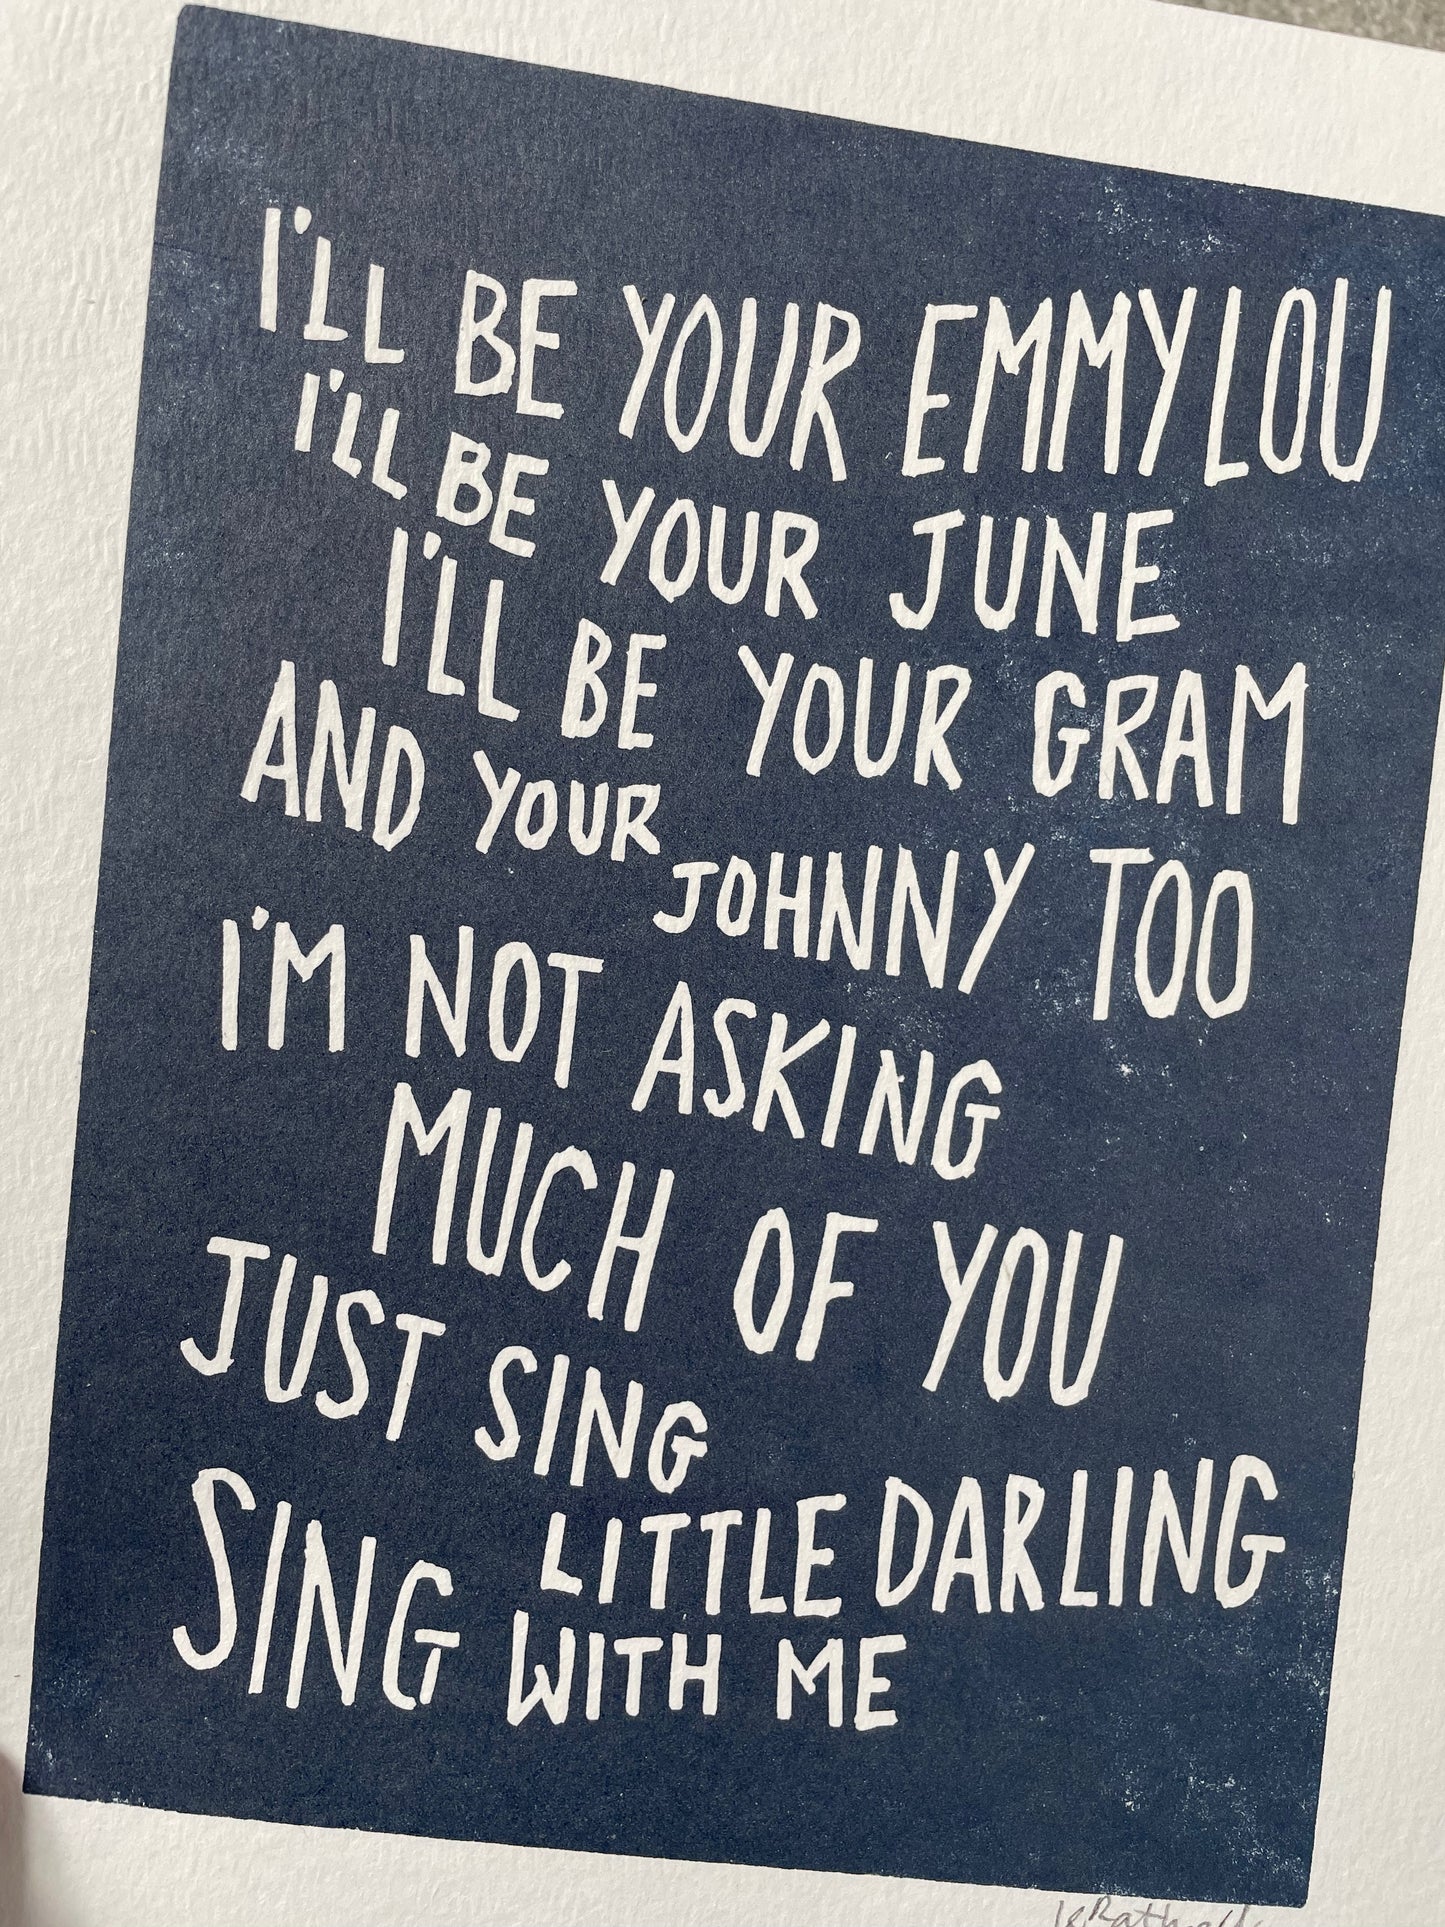 I'LL BE YOUR EMMYLOU
I'LL BE YOUR JUNE
I'LL BE YOUR GRAM
AND YOUR JOHNNY TOO
I'M NOT ASKING
MUCH OF YOU
JUST SING
LITTLE DARLING
SING WITH ME